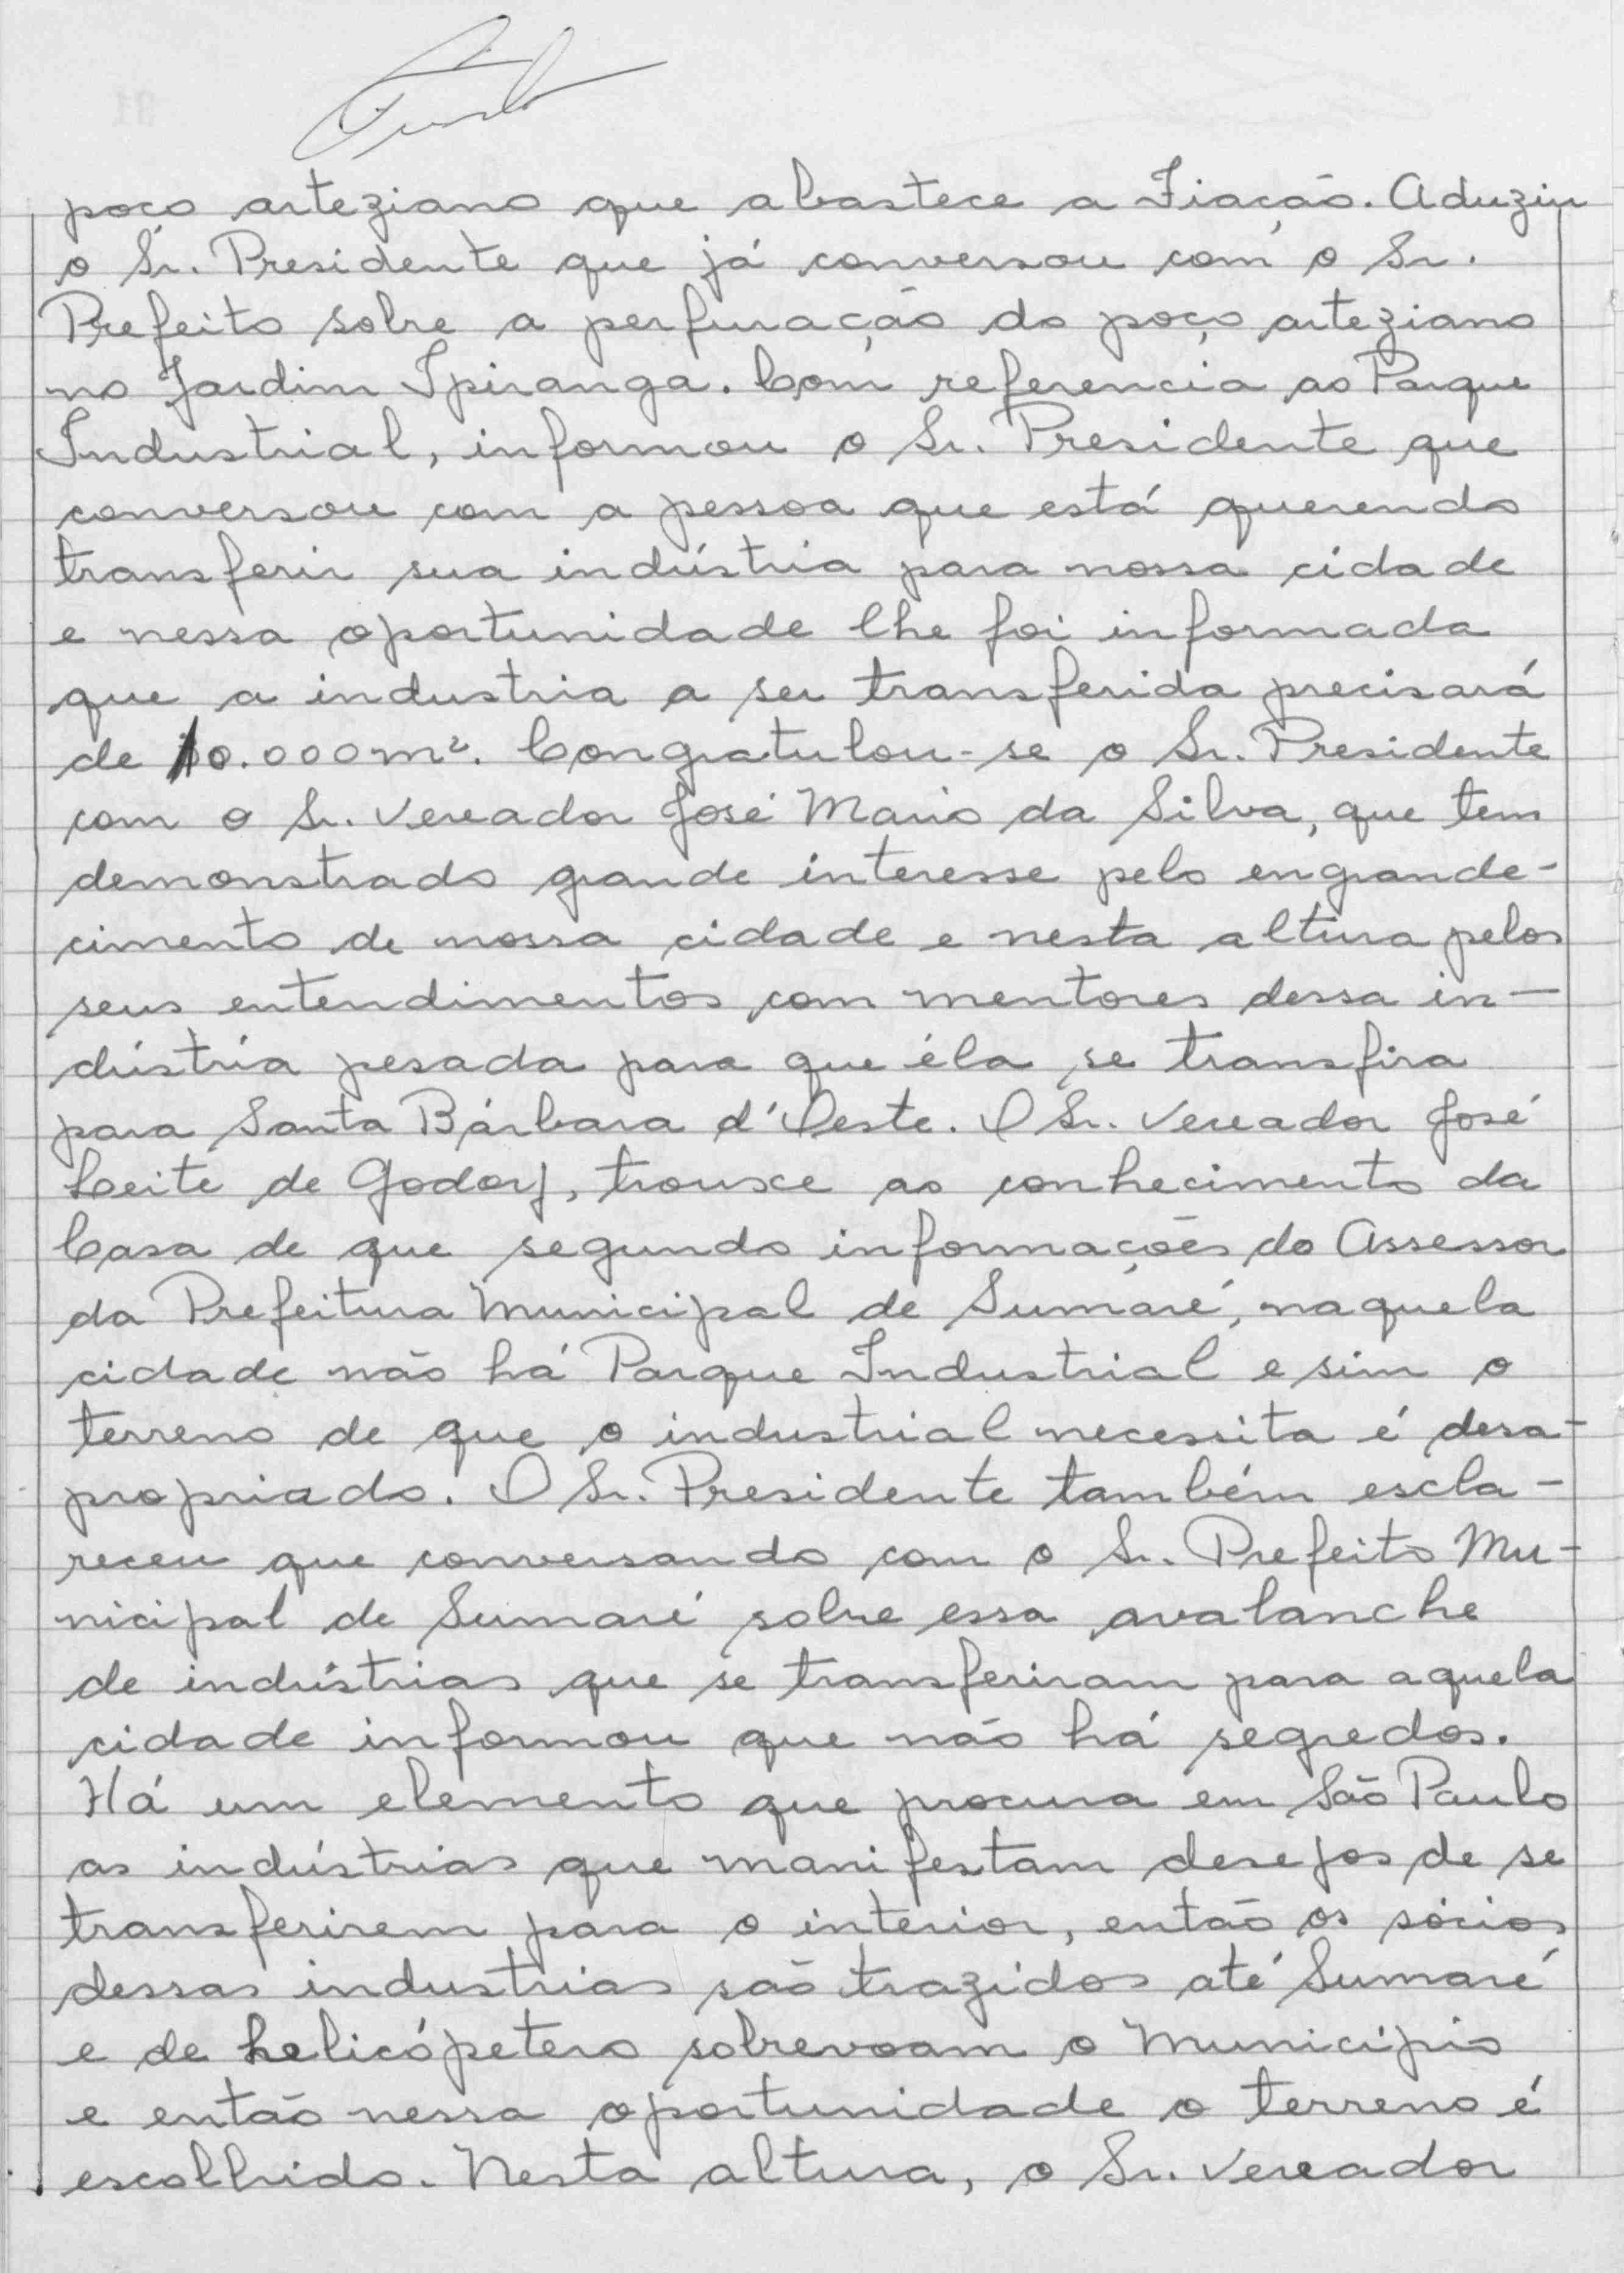 poço arteziano que abastece a Fiação. Aduziu
o Sr. Presidente que já conversou com o Sr.
Prefeito sobre a perfuração do poço arteziano
no Jardim Ipiranga. Com referencia ao Parque
Industrial, informou o Sr. Presidente que
conversou com a pessoa que está querendo
transferir sua indústria para nossa cidade
e nessa oportunidade lhe foi informada
que a industria a ser transferida precisará
de 10.000m². Congratulou-se o Sr. Presidente
com o Sr. Vereador José Maria da Silva, que tem
demonstrado grande interesse pelo engrande-
cimento de nossa cidade e nesta altura pelos
seus entendimentos com mentores dessa in-
dústria pesada para que éla se transfira
para Santa Bárbara d'Oeste. O Sr. Vereador José
Leite de Godoy, trouxe ao conhecimento da
Casa de que segundo informações do Assessor
da Prefeitura Municipal de Sumaré, naquela
cidade não há Parque Industrial e sim o
terreno de que o industrial necessita é desa-
propriado. O Sr. Presidente também escla-
receu que conversando com o Sr. Prefeito Mu-
nicipal de Sumaré sobre essa avalanche
de indústrias que se transferiram para aquela
cidade informou que não há segredos.
Há um elemento que procura em São Paulo
as indústrias que manifestam desejos de se
transferirem para o interior, então os sócios
dessas industrias são trazidos até Sumaré
e de helicópetero sobrevoam o Município
e então nessa oportunidade o terreno é
escolhido. Nesta altura, o Sr. Vereador